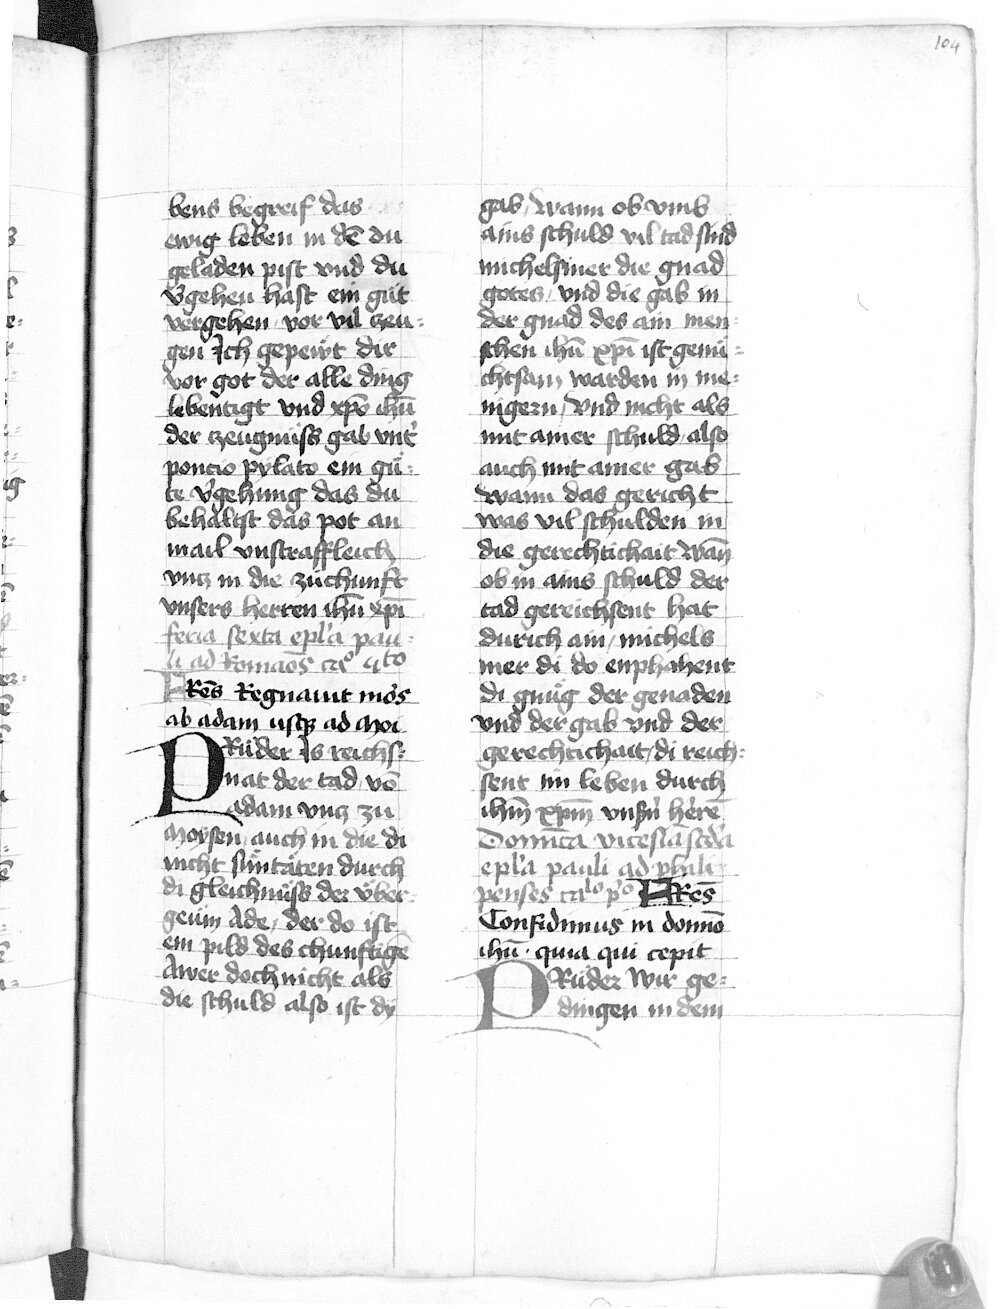 104
bens begreif das
ewig leben in dē du
geladen pist vnd du
v̓gehen hast ein gůt
vergehen vor vil czeu-
gen Ich gepewt dir
vor got der alle ding
lebentigt vnd xp̄o ihū
der czeugnüss gab vnt̓
poncio pylato ein gů-
te v̓gehung das du
behaltst das pot an
mail vnstraffleich
vncz in die zůchunft
vnsers herren ihū xp̄i
feria sexta ep̄la pau-
li ad Romaōs ca° qto
FRēs Regnauit mo̓s
ab adam usq3 ad moi
PRüder Is reichs-
nat der tad võ
adam vncz zu
Moysen auch in die di
nicht sünntäten durch
di gleichnüss der vber-
geüm Ade, der do ist
ein pild des chunftigē
Awer doch nicht als
die schuld also ist dy
gab, wann ob vmb
ains schuld vil tad sind
michelsmer die gnad
gotes, vnd die gab in
der gnad des ain men-
schen ihū xp̄i ist genü-
chtsam warden in me-
nigern, vnd nicht als
mit ainer schuld also
auch mit ainer gab
wann das gericht
was vil schulden in
die gerechtichait Wañ
ob in ains schuld der
tad gereichsent hat
durich ain, michels
mer di do enphahent
di gnüg der genaden
vnd der gab vnd der
gerechtichait, di reich-
sent im leben durch
ihm̄ xp̄m vnsn̄ hèrē
Domica vicesiā scd̄a
ep̄la pauli ad phali-
penses calo p° FRēs
Confidimus in domīo
ihū · quia qui cepit
PRüder Wir ge-
dingen in dem